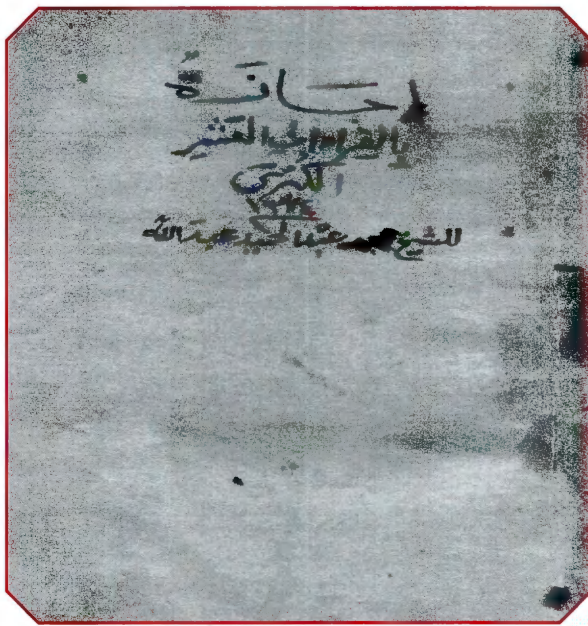 إجازة
بالقراءات العشر
الكبرى
للشيخ محمد عبد الحميد عبد الله